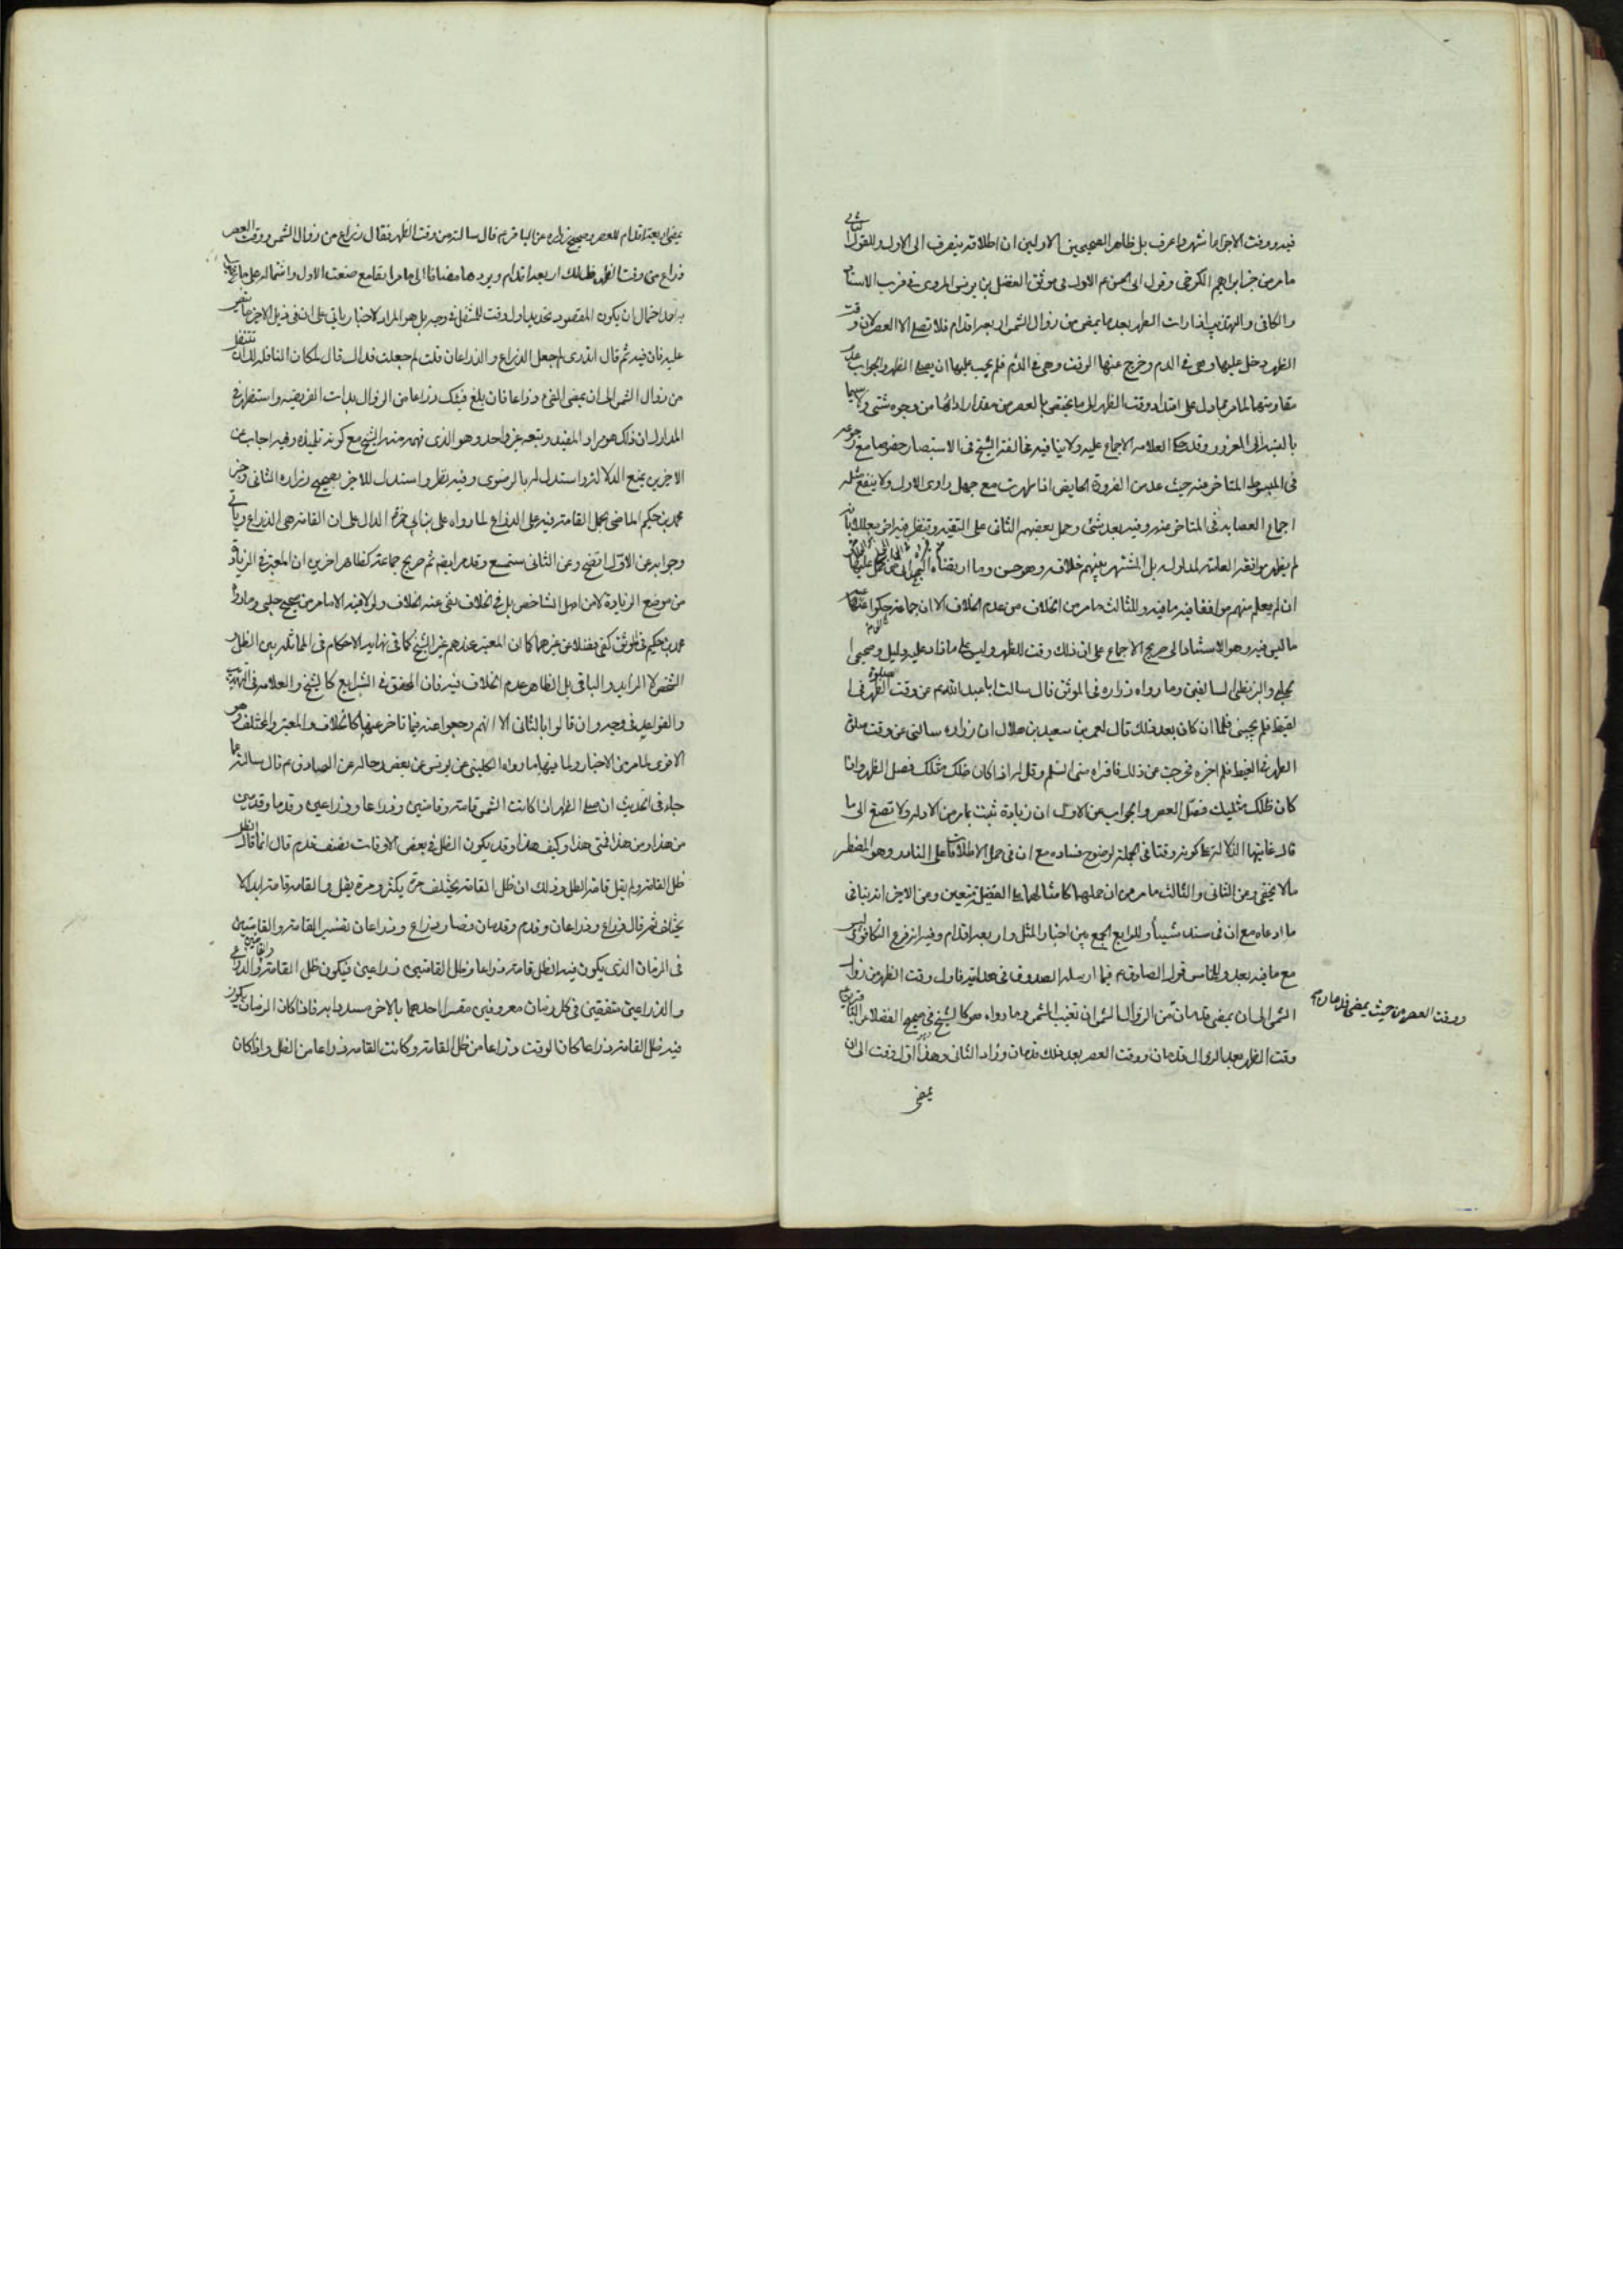 فيه ووقت الاجزاء اشهر واعرف بل ظاهر الصحيحين الاولين ان اطلاقه ينصرف الى الاول وللقول الثاني
ما مر من خبر ابراهيم الكرخي وقول ابى الحسن ع الاول فى موثق الفضل بن يونس المروى فى قرب الاسناد
والكافى والتهذيب اذا رات الطهر بعد ما يمضى من زوال الشمس اربعة اقدام فلا تصلى الا العصر لان وقت
الظهر دخل عليها وهى فى الدم وخرج عنها الوقت وهى فى الدم فلم يجب عليها ان تصلى الظهر والجواب عدم
مقاومتهما لما مر مما دل على امتداد وقت الظهر الى ما يختص بالعصر من مقدار ادائها من وجوه شتى ولا سيما
بالنسبة الى المعذور وقد حكى العلامة الاجماع عليه ولا ينافيه مخالفة الشيخ فى الاستبصار خصوصا مع رجوعه
فى المبسوط المتاخر عنه حيث عد من الضرورة الحايض اذا طهرت مع جهل راوى الاول ولا ينفع مثله
اجماع العصابة فى المتاخر عنه وفيه بعد شئ وحمل بعضهم الثانى على التقية وتنظر فيه اخر معللا بانه
لم يظهر موافقة العامة لمدلوله بل المشتهر بينهم خلافه وهو حسن
ان لم يعلم منهم موافقا فيه ما فيه وللثالث ما مر من الخلاف من عدم الخلاف الا ان جماعة حكوا عنه
ما ليس فيه وهو الاستناد الى صريح الاجماع على ان ذلك وقت للظهر وليس على ما زاد عليه دليل وصحيحى
الحلبى والبزنطى السابقين وما رواه زراره فى الموثق قال سالت ابا عبد الله ع عن وقت صلوة الظهر فى
القيظ فلم يجبنى فلما ان كان بعد ذلك قال لعمر بن سعيد بن هلال ان زراره سالنى عن وقت صلوة
الظهر فى القيظ فلم اخبره فحرجت من ذلك فاقراه منى السلم وقل له اذا كان ظلك مثلك فصل الظهر واذا
كان ظلك مثليك فصل العصر والجواب عن الاول ان زيادة ثبتت بما مر من الادلة ولا تصغ الى ما
قال غايتها الدلالة على كونه وقتا فى الجملة لوضوح فساده مع ان فى حمل الاطلاقات على النادر وهو المضطر
ما لا يخفى وعن الثانى والثالث ما مر من ان حملهما كامثالهما على الفضل متعين وعن الاخير انه ينافى
ما ادعاه مع ان فى سنده شيئا وللرابع الجمع بين اخبار المثل واربعة اقدام وفيه انه فرع التكافؤ وليس
مع ما فيه بعد وللخامس قول الصادق ع فيما ارسله الصدوق فى هدايته فاول وقت الظهر من زوال
الشمس الى ان يمضى قدمان ووقت العصر من حيث يمضى قدمان من الزوال الى ان تغيب الشمس وما رواه هو كالشيخ فى صحيح الفضلاء
وقت الظهر بعد الزوال قدمان ووقت العصر بعد ذلك قدمان وزاد الثانى وهذا اول وقت الى ان
يمضى
يمضى اربعة اقدام للعصر وصحيح زراره عن الباقر ع قال سالته عن وقت الظهر فقال ذراع من زوال الشمس ووقت العصر
ذراع من وقت الظهر فذلك اربعة اقدام ويردهما مضافا الى ما مر سابقا مع ضعف الاول واشتماله على ما
احتمال ان يكون المقصود تحديد اول وقت للمتنفل فى وجه بل هو المراد كالاخبار ياتى على ان فى ذيل الاخير
عليه فان فيه ثم قال اتدرى لم جعل الذراع والذراعان قلت لم جعلت فداك قال لمكان النافلة لك ان تتنفل
من زوال الشمس الى ان يمضى الفئ ذراعا فان بلغ فيئك ذراعا من الزوال بدات الفريضة واستظهر فى
المدارك ان ذلك هو مراد المفيد وتبعه غير واحد وهو الذى فهمه منه الشيخ مع كونه تلميذه وفيه اجاب عن
الاخرين بمنع الدلالة واستدل له بالرضوى وفيه نظر واستدل للاخير بصحيحى زراره الثانى وخبر
محمد بن حكيم الماضى بحمل القامة فيه على الذراع لما رواه على بن ابى حمزة الدال على ان القامة هى الذراع وياتى
وجوابه عن الاول اتضح وعن الثانى ستسمع وقد مر ايضا ثم صريح جماعة كظاهر اخرين ان المعتبر فى الزيادة
من موضع الزيادة لا من اصل الشاخص بل فى الخلاف نفى عنه الخلاف
محمد بن حكيم فى الموثق كفى بفضلا عن غيرهما كما ان المعتبر عندهم غير الشيخ كما فى نهاية الاحكام فى المماثلة بين الظل
الشخص لا الزايد والباقى بل الظاهر عدم الخلاف فيه فان المحقق فى الشرايع كالشيخ والعلامة فى التهذيب
والقواعد فى وجه وان قالوا بالثانى الا انهم رجعوا عنه فيما تاخر عنها كالخلاف والمعتبر والمختلف وهو
الاقوى لما مر من الاخبار ولما بينها ما رواه الكلينى عن يونس عن بعض رجاله عن الصادق ع قال سالته عما
جاء فى الحديث ان صلى الظهر اذا كانت الشمس قامة وقامتين وذراعا وذراعين وقدما وقدمين
من هذا ومن هذا فمتى هذا وكيف هذا وقد يكون الظل فى بعض الاوقات نصف قدم قال انما قال
ظل القامة ولم يقل قامة الظل وذلك ان ظل القامة يختلف مرة يكثر ومرة يقل والقامة قامة ابدا لا
يختلف ثم قال ذراع وذراعان وقدم وقدمان فصار ذراع وذراعان تفسير القامة والقامتين
فى الزمان الذى يكون فيه الظل قامة ذراعا وظل القامتين ذراعين فيكون ظل القامة والقامتين والذراع
والذراعين متفقين فى كل زمان معروفين مفسرا احدهما بالاخر مسددا به فاذا كان الزمان يكون
فيه ظل القامة ذراعا كان الوقت ذراعا من ظل القامة وكانت القامة ذراعا من الظل واذا كان